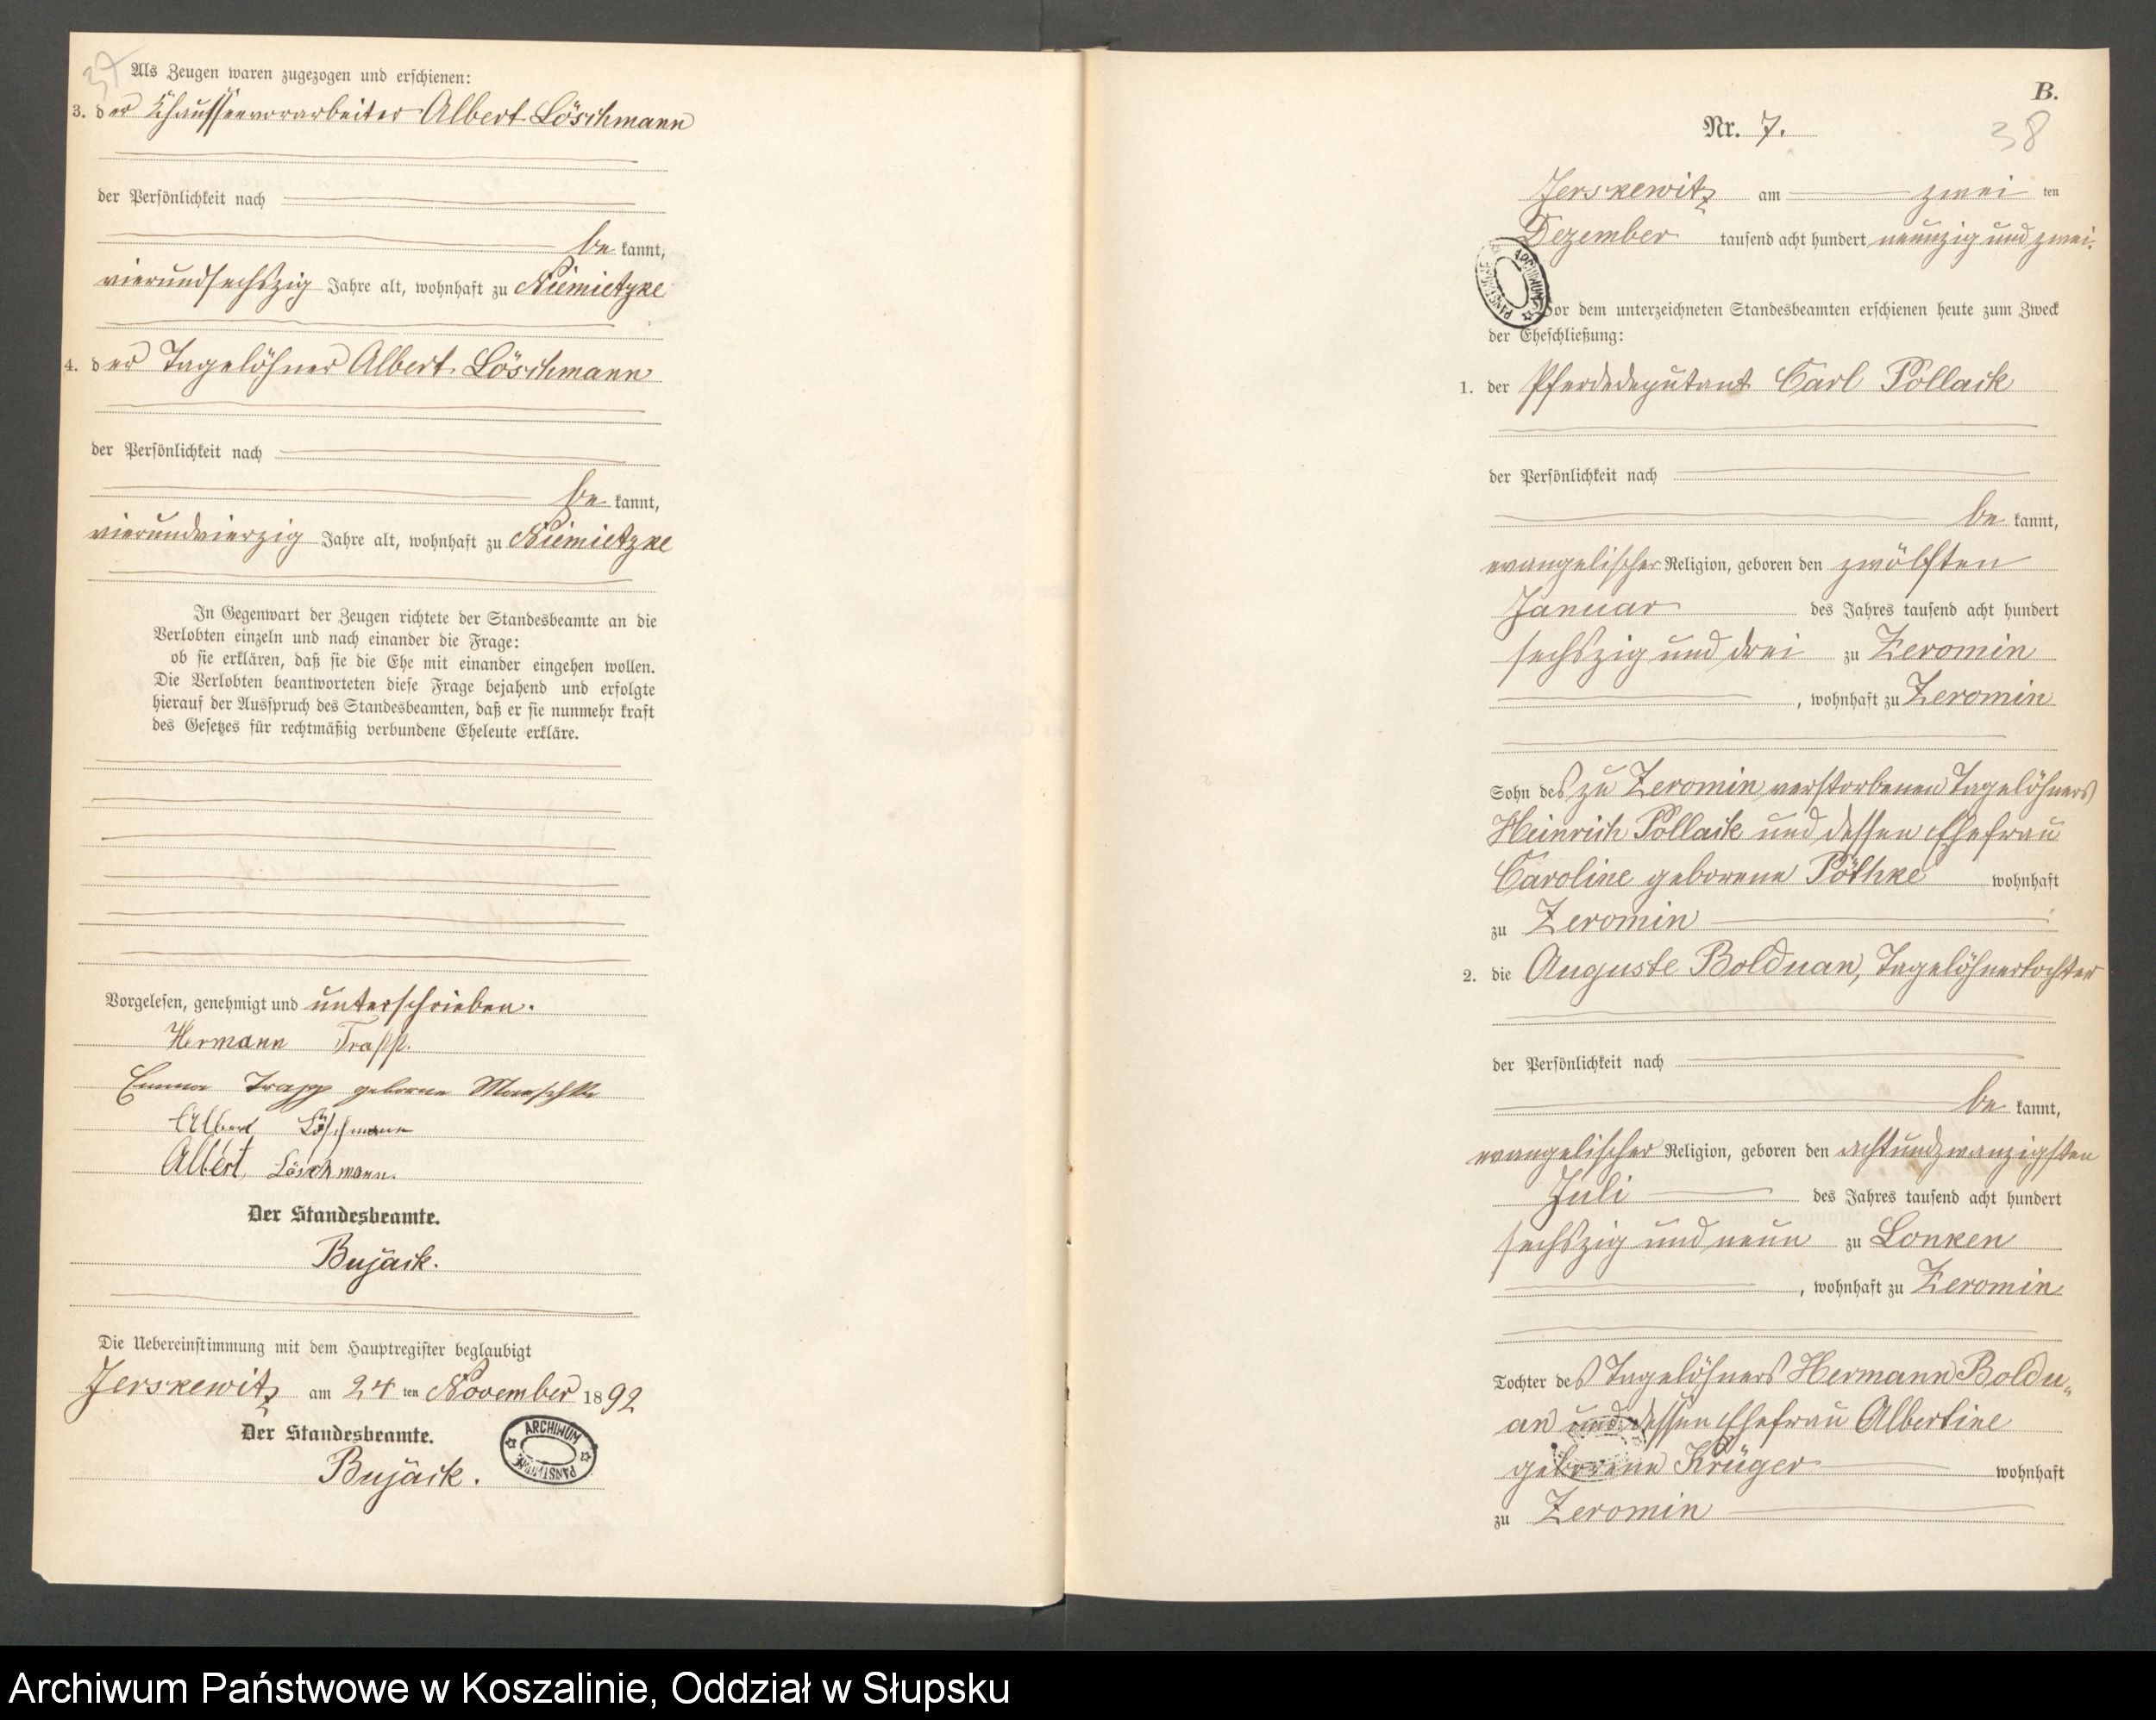 37
Als Zeugen waren zugezogen und erschienen:
3. der Chausseevorarbeiter Albert Löschmann
der Persönlichkeit nach
be kannt,
vierundsechszig Jahre alt, wohnhaft zu Niemietzke
4. der Tagelöhner Albert Löschmann
der Persönlichkeit nach
be kannt,
vierundvierzig Jahre alt, wohnhaft zu Niemietzke
In Gegenwart der Zeugen richtete der Standesbeamte an die
Verlobten einzeln und nach einander die Frage:
ob sie erklären, daß sie die Ehe mit einander eingehen wollen.
Die Verlobten beantworteten diese Frage bejahend und erfolgte
hierauf der Ausspruch des Standesbeamten, daß er sie nunmehr kraft
des Gesetzes für rechtmäßig verbundene Eheleute erkläre.
Vorgelesen, genehmigt und unterschrieben.
Hermann Trapp.
Emma Trapp geborne
Albert Löschmann
Albert Löschmann.
Der Standesbeamte.
Bujack.
Die Uebereinstimmung mit dem Hauptregister beglaubigt
Jerskewitz am 24 ten November 1892
Der Standesbeamte.
Bujack.
ARCHIWUM PAŃSTWOWE
B.
38
Nr. 7.
Jerskewitz am zwei ten
Dezember tausend acht hundert neunzig und zwei.
ARCHIWUM PAŃSTWOWE
Vor dem unterzeichneten Standesbeamten erschienen heute zum Zweck
der Eheschließung:
1. der Pferdedeputant Carl Pollack
der Persönlichkeit nach
be kannt,
evangelischer Religion, geboren den zwölften
Januar des Jahres tausend acht hundert
sechszig und drei zu Zeromin
, wohnhaft zu Zeromin
Sohn des zu Zeromin verstorbenen Tagelöhners
Heinrich Pollack und dessen Ehefrau
Caroline geborene Pöthke wohnhaft
zu Zeromin
2. die Auguste Bolduan, Tagelöhnertochter
der Persönlichkeit nach
be kannt,
evangelischer Religion, geboren den achtundzwanzigsten
Juli des Jahres tausend acht hundert
sechszig und neun zu Lonken
, wohnhaft zu Zeromin
Tochter des Tagelöhners Hermann Boldu„
an und dessen Ehefrau Albertine
geborene Krüger wohnhaft
zu Zeromin
Archiwum Państwowe w Koszalinie, Oddział w Słupsku